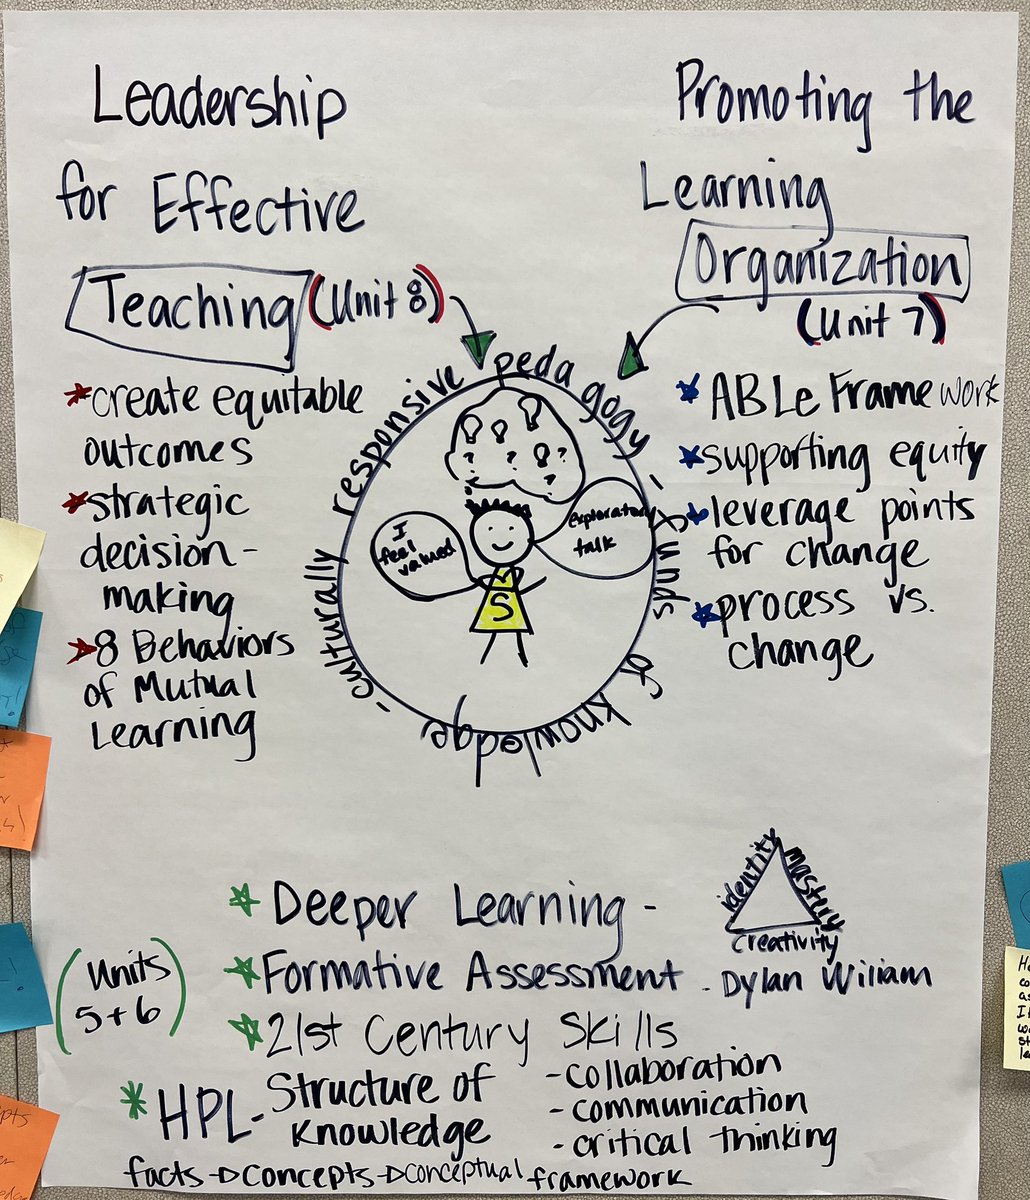 Leadership
for Effective
Teaching (Unit 8)
*create equitable
outcomes
*strategic
decision-
making
*8 Behaviors
of Mutual
Learning
Promoting the
Learning
Organization
(Unit 7)
*ABLe Framework
*supporting equity
*leverage points
for change
*process vs.
change
- culturally responsive pedagogy - funds of knowledge
? ? ? ?
I
feel
valued
exploratory
talk
S
(Units
5+6)
*Deeper Learning -
identity
mastery
creativity
*Formative Assessment - Dylan Wiliam
*21st Century Skills
- collaboration
- communication
- critical thinking
*HPL- Structure of
Knowledge
facts → concepts → conceptual framework